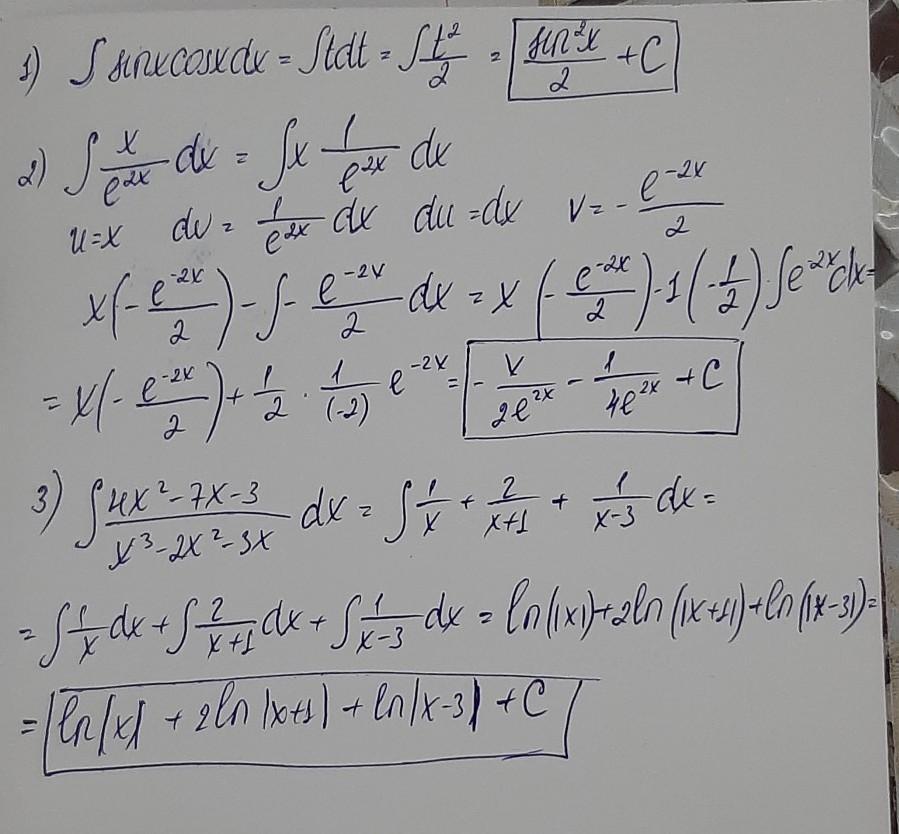 1) ∫ sinxcosxdx = ∫tdt = ∫t²/2 = sin²x/2 + C
2) ∫ x/e²ˣ dx = ∫x 1/e²ˣ dx
u=x dv = 1/e²ˣ dx du=dx v=- e⁻²ˣ/2
x(-e⁻²ˣ/2) - ∫- e⁻²ˣ/2 dx = x (- e⁻²ˣ/2) - 1(-1/2)·∫e⁻²ˣdx=
= x(- e⁻²ˣ/2) + 1/2 · 1/(-2) e⁻²ˣ = - x/2e²ˣ - 1/4e²ˣ + C
3) ∫ 4x²-7x-3/x³-2x²-3x dx = ∫ 1/x + 2/x+1 + 1/x-3 dx =
= ∫ 1/x dx + ∫ 2/x+1 dx + ∫ 1/x-3 dx = ln(|x|)+2ln(|x+1|)+ln(|x-3|)=
= ln|x| + 2ln|x+1| + ln|x-3| + C